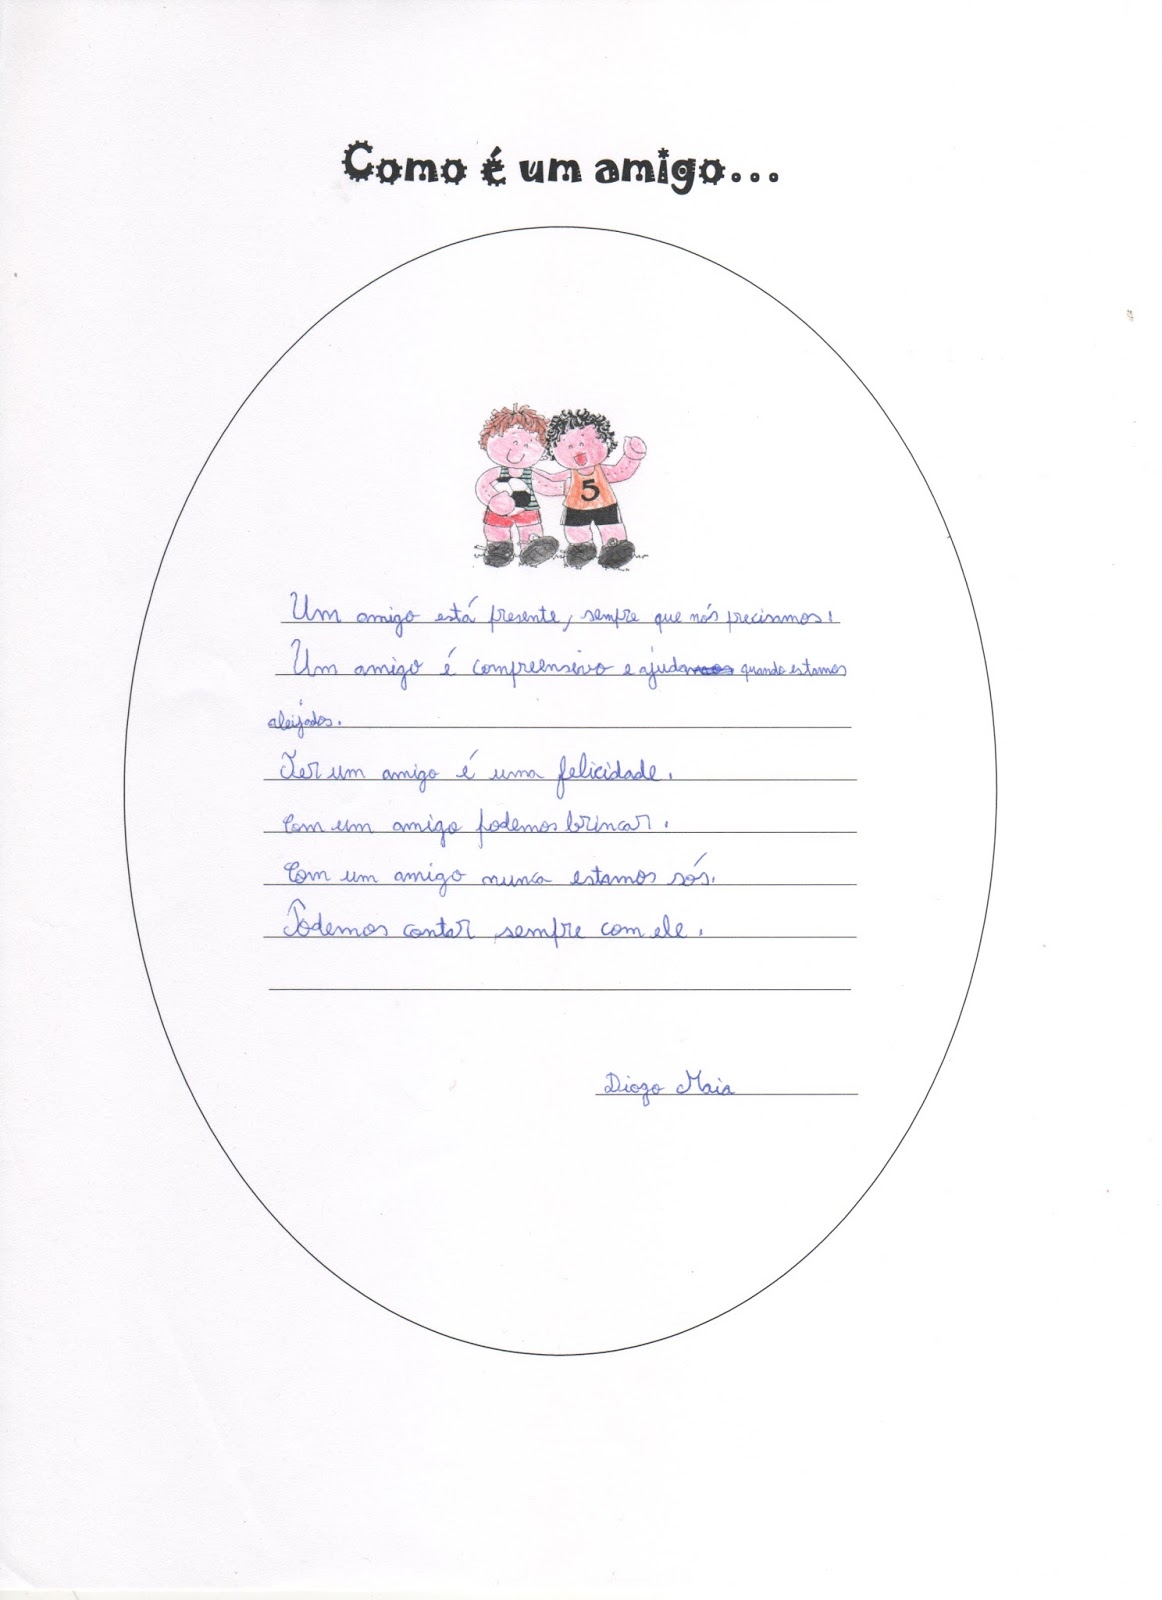 Como é um amigo...
5
Um amigo está presente, sempre que nós precisamos!
Um amigo é compreensivo e ajuda quando estamos
aleijados.
Ter um amigo é uma felicidade.
Com um amigo podemos brincar.
Com um amigo nunca estamos sós.
Podemos contar sempre com ele.
Diogo Maia